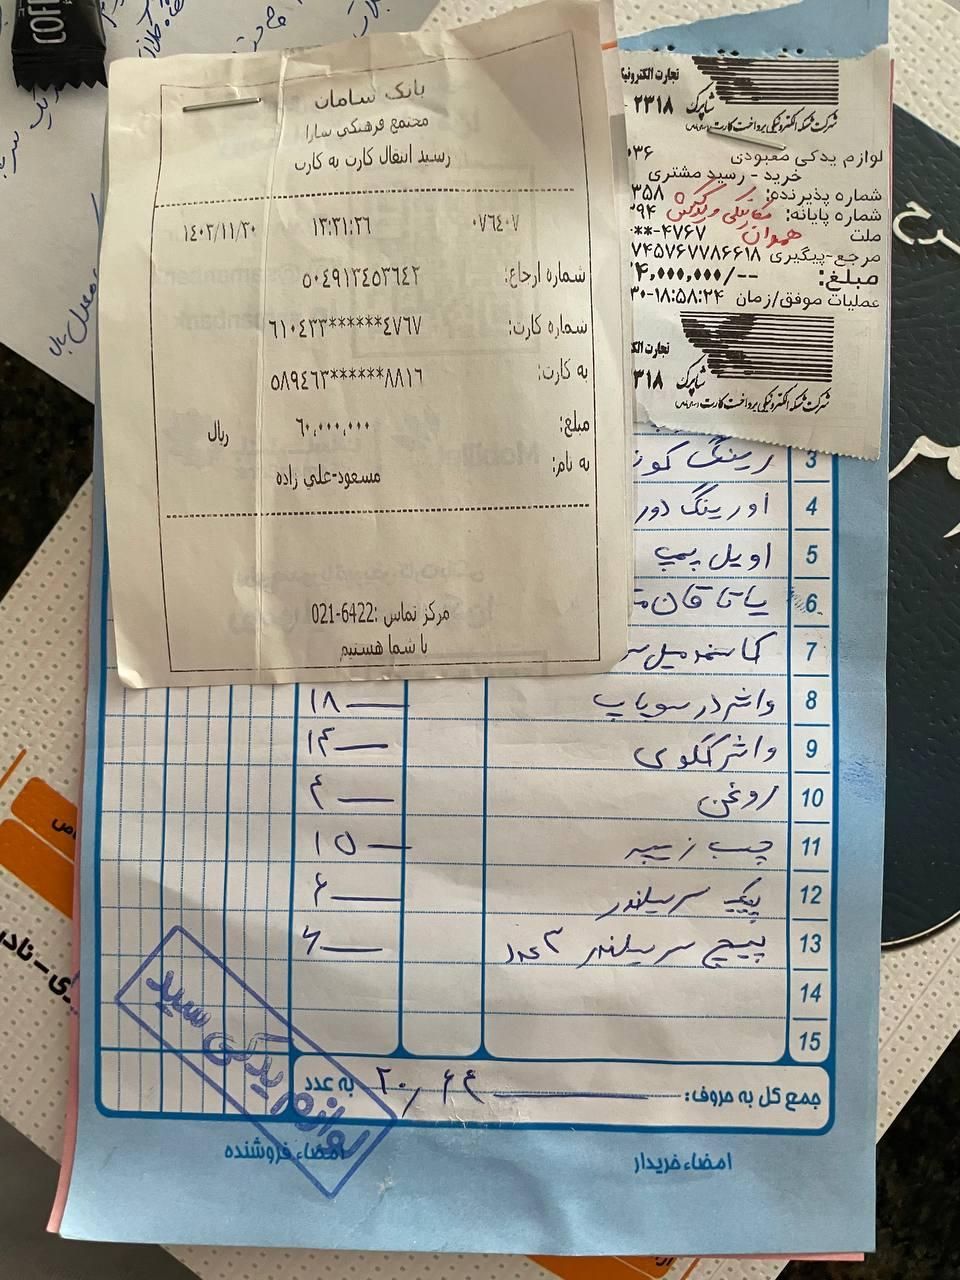 COFF
بانک سامان
مجتمع فرهنگی سارا
رسید انتقال کارت به کارت
۱۴۰۳/۱۱/۳۰ ۱۳:۳۱:۳۶ ۰۷۶۴۰۷
شماره ارجاع: ۵۰۴۹۱۳۴۵۳۶۴۲
شماره کارت: ۶۱۰۴۳۳******۴۷۶۷
به کارت: ۵۸۹۴۶۳******۸۸۱۶
مبلغ: ۶۰,۰۰۰,۰۰۰ ریال
به نام: مسعود-علي زاده
مرکز تماس :6422-021
با شما هستیم
تجارت الکترونیک
۲۳۱۸ شاپرک
شرکت شبکه الکترونیکی پرداخت کارت
لوازم یدکی معبودی ۰۳۶
خرید - رسید مشتری
شماره پذیرنده: ۳۵۸
شماره پایانه: ۲۹۴
ملت **-۴۷۶۷
همدان
مرجع-پیگیری ۷۴۵۷۶۷۷۸۶۶۱۸
مبلغ: ۴,۰۰۰,۰۰۰/--
عملیات موفق/زمان ۳۰-۱۸:۵۸:۲۴
تجارت الک
۳۱۸ شاپرک
شرکت شبکه الکترونیکی پرداخت کارت
3 رینگ
4 اورینگ دور
5 اویل پمپ
6 یاتاقان
7 کاسه
8 واشر درسوپاپ ۱۸
9 واشر ۱۲
10 روغن ۴
11 چسب ۱۵
12 سرسیلندر ۶
13 پیچ سرسیلندر ۲ عدد ۶
14
15
جمع کل به حروف: به عدد ۲۰,۶۴
امضاء خریدار امضاء فروشنده
لوازم یدکی سید
ی-نادر